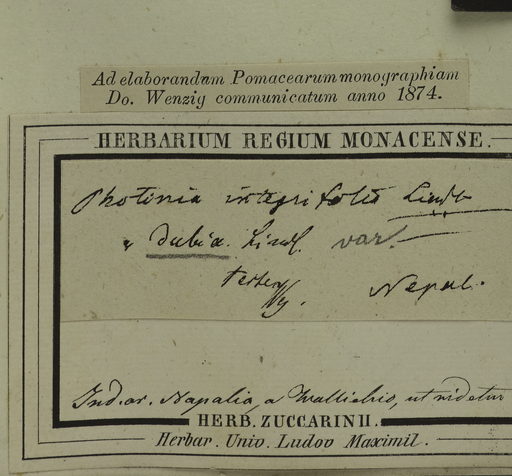 Ad elaborandam Pomacearum monographiam
Do. Wenzig communicatum anno 1874.
HERBARIUM REGIUM MONACENSE.
Photinia integrifolia Lindl
dubia. Lindl. var.
Nepal.
Ind. or. Napalia, a Wallichio, ut videtur
HERB. ZUCCARINII.
Herbar. Univ. Ludov Maximil.